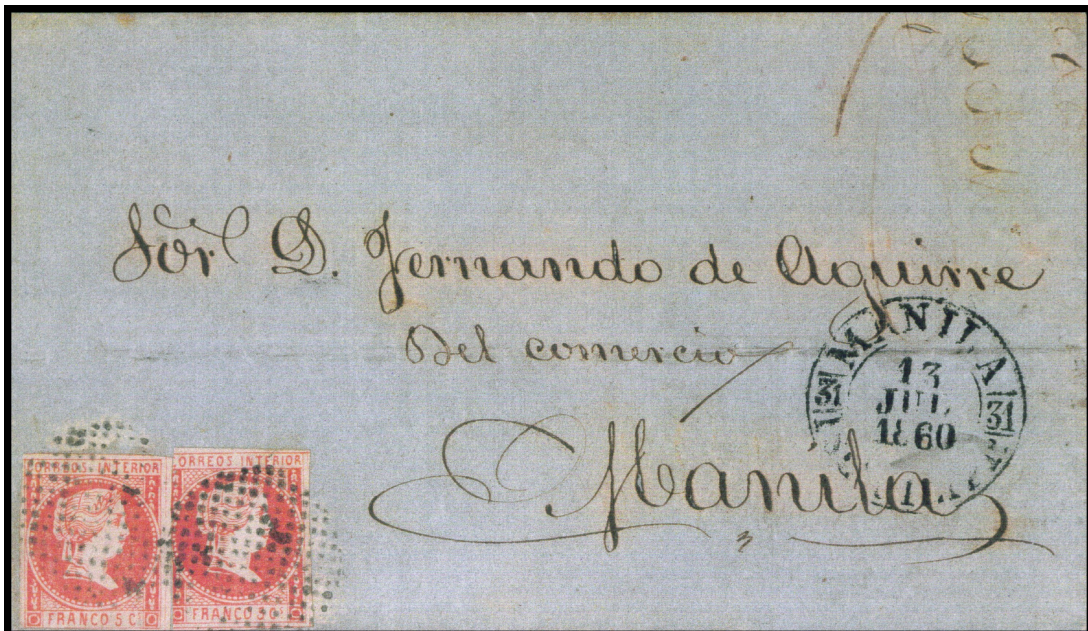 Sor D. Fernando de Aguirre
Del comercio
Manila
MANILA
13
JUL
1860
31
31
CORREOS INTERIOR
FRANCO 5 C
CORREOS INTERIOR
FRANCO 5 C